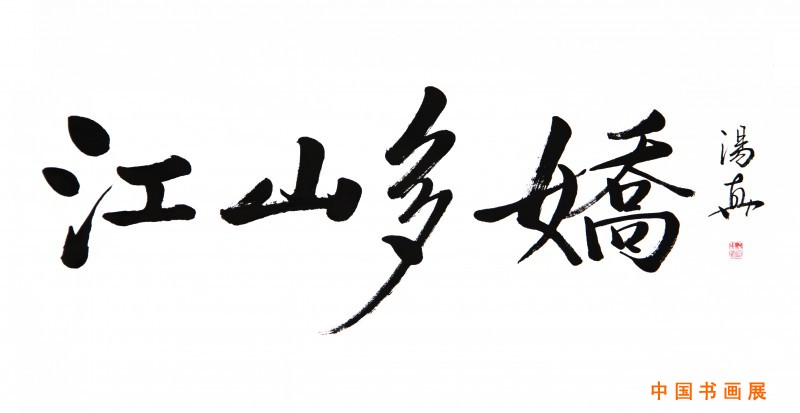 江山多嬌
湯真
中国书画展